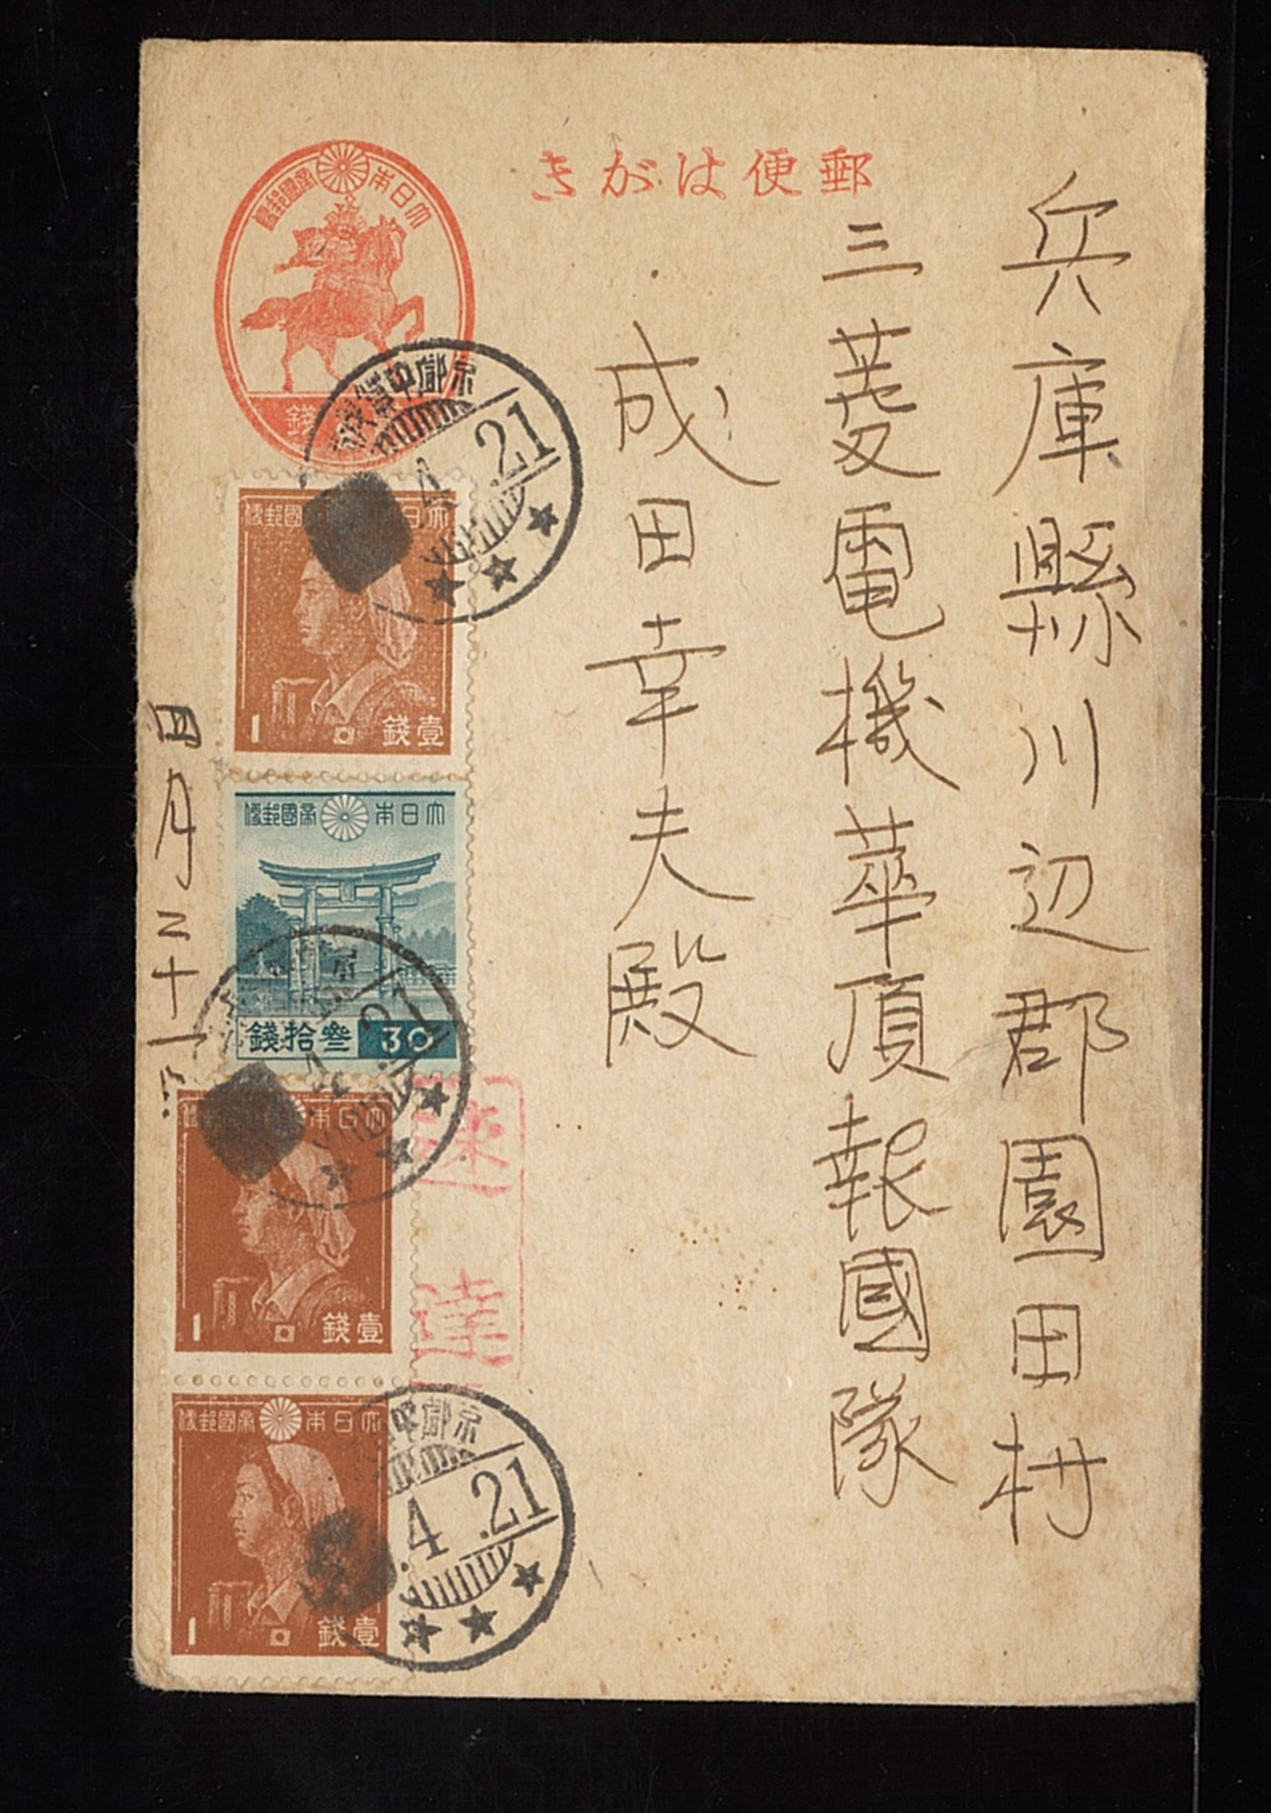 郵便はがき
兵庫縣川辺郡園田村
三菱電機華頂報國隊
成田幸夫殿
大日本帝國郵便
錢
4.21
大日本帝國郵便
1 壹錢
大日本帝國郵便
叁拾錢 30
4.21
速達
大日本帝國郵便
1 壹錢
大日本帝國郵便
1 壹錢
4.21
四月二十一